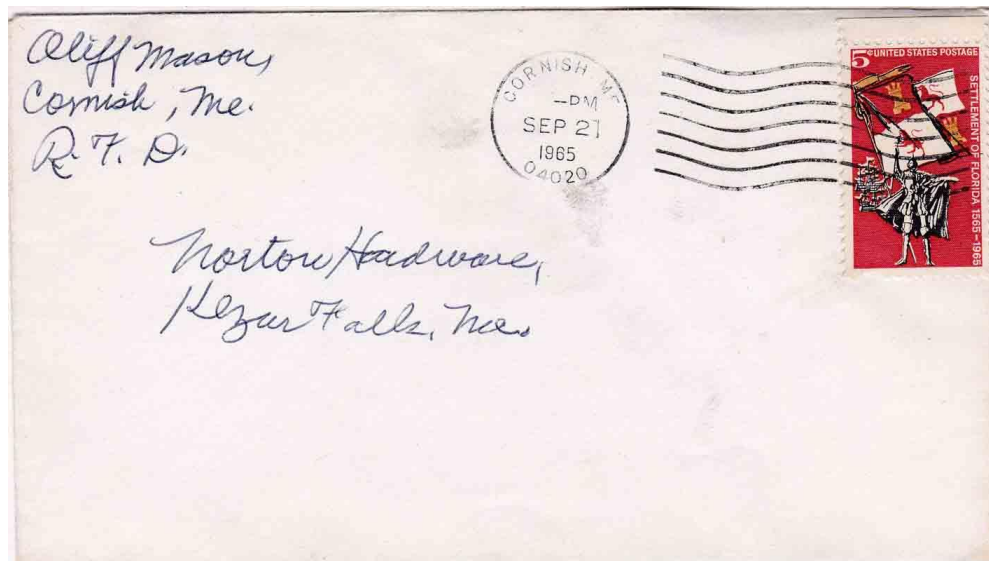 Cliff Mason,
Cornish, Me.
R. F. D.
CORNISH, ME
-PM
SEP 21
1965
04020
5¢ UNITED STATES POSTAGE
SETTLEMENT OF FLORIDA 1565-1965
Norton Hadware,
Kezar Falls, Me.